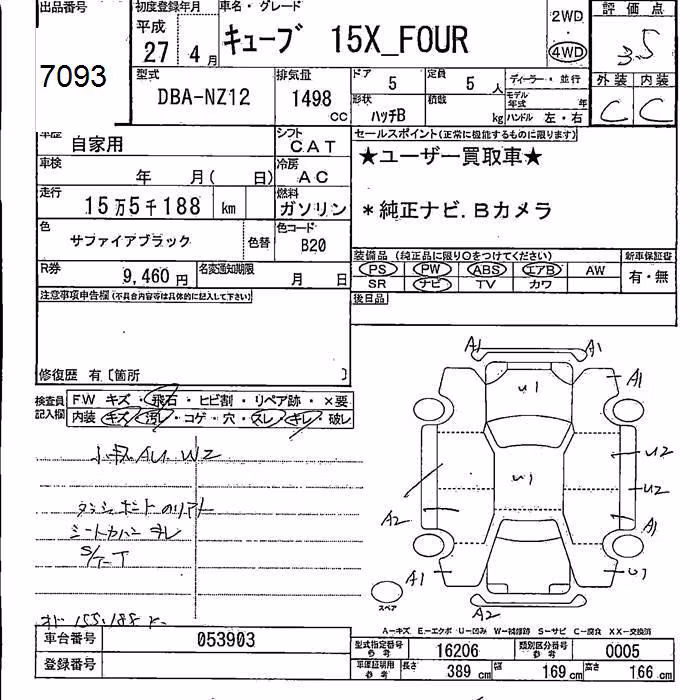 出品番号
7093
初度登録年月
平成
27 4 月
車名・グレード
キューブ 15X_FOUR
2WD
・
4WD
評価点
3.5
外装 内装
C C
型式
DBA-NZ12
排気量
1498 cc
ドア 5
定員 5 人
ディーラー・並行
モデル年式 年
形状 ハッチB
積載 kg
ハンドル 左・右
車歴 自家用
シフト CAT
車検 年 月( 日)
冷房 AC
走行 15万5千188 km
燃料 ガソリン
色 サファイアブラック
色替
色コード B20
R券 9,460 円
名変通知期限 月 日
セールスポイント(正常に機能するものに限ります)
★ユーザー買取車★
*純正ナビ.Bカメラ
装備品 (純正品に限り○をつけてください)
PS PW ABS エアB AW
SR ナビ TV カワ
新車保証書
有・無
後日品
注意事項申告欄(不具合内容等は具体的に記入して下さい)
修復歴 有〔箇所 〕
検査員記入欄
FW キズ・飛石・ヒビ割・リペア跡・×要
内装 キズ・汚れ・コゲ・穴・スレ・キレ・破レ
小キズAU.W2
シートカバー キレ
S/T-T
オド 155.188 K-
A1 A1
U1 A1
U2
U1 U2
A2 A1
A1 U1
スペア
A2
A…キズ E…エクボ U…凹み W…補修跡 S…サビ C…腐食 XX…交換済
車台番号 053903
登録番号
型式指定番号 参考 16206
類別区分番号 参考 0005
車庫証明用 参考 長さ 389 cm 幅 169 cm 高さ 166 cm